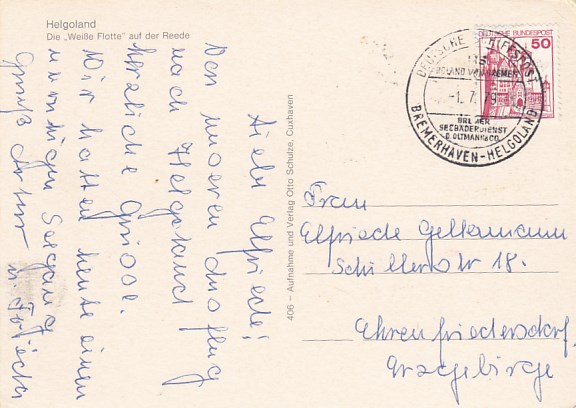 Helgoland
Die „Weiße Flotte" auf der Reede
Liebe Elfriede!
Von unseren Ausflug
nach Helgoland
herzliche Grüsse.
Wir hatten heute einen
Seegang
Gruß Artur
406 – Aufnahme und Verlag Otto Schulze, Cuxhaven
DEUTSCHE BUNDESPOST
50
DEUTSCHE SCHIFFSPOST
MS
ROLAND VON BREMEN
-1.7.79
BREMER
SEEBÄDERDIENST
D. OLTMANN & CO.
BREMERHAVEN-HELGOLAND
Frau
Elfriede Geltermann
Schillerstr 18.
Ehrenfriedersdorf.
Erzgebirge